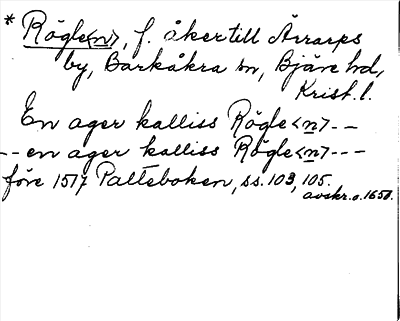 * Rögle<n>, f. åker till Ärrarps
by, Barkåkra sn, Bjäre hd,
Krist. l.
En ager kalliss Rögle<n>--
--en ager kalliss Rögle<n>---
före 1517 Palteboken, ss. 103, 105.
avskr. o. 1650.